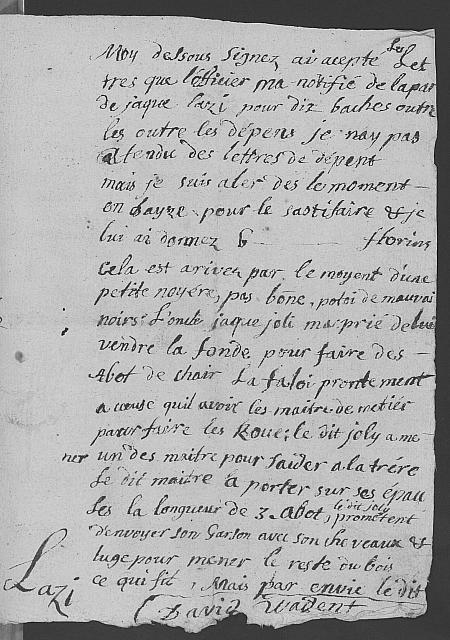 Moy dessous signez ai acepté les let
tres que lofficier ma notifié de la par
de jaque Lazi pour dix baches outre
les outre les dépens je nay pas
atendu des lettres de dépent
mais je suis aler dès le moment —
en pour le sastifaire & je
lui ai donnez 6 — florins
Cela est arivez par le moyent d'une
petite noyere, pas bône, de mauvai
noirs L'oncle jaque joli ma prié de lui
vendre la fonde pour faire des —
Abot de chair La faloi prontement
a cause quil avoir les maitre de metier
pour faire les Roue; le dit joly a me
ner un des maitre pour laider a la trére
Le dit maitre a porter sur ses épau
les la longueur de 3 Abot, le dit joly prometent
denvoyer son Garson avec son chevaux &
luge pour mener le reste du bois
ce qui fit, Mais par envie le dit
Lazi
David